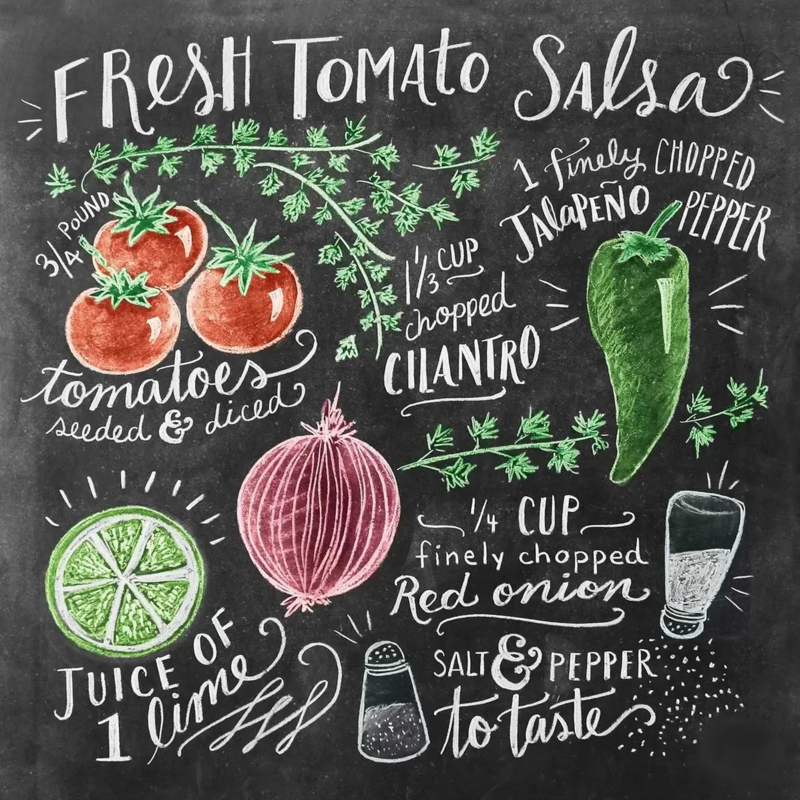 FRESH TOMATO SALSA
1 finely CHOPPED
JALAPEÑO PEPPER
3/4 POUND
tomatoes
seeded & diced
1/3 CUP
chopped
CILANTRO
1/4 CUP
finely chopped
Red onion
JUICE OF
1 lime
SALT & PEPPER
to taste